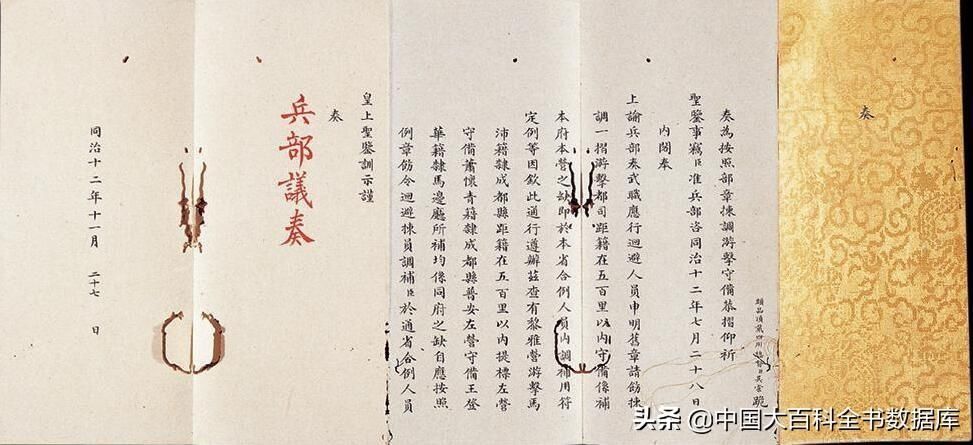 奏
頭品頂戴四川總督臣吳棠跪
奏為按照部章揀調游擊守備恭摺仰祈
聖鑒事竊臣准兵部咨同治十二年七月二十八日
內閣奉
上諭兵部奏武職應行迴避人員申明舊章請飭揀
調一摺游擊都司距籍在五百里以內守備係補
本府本營之缺即於本省合例人員內調補用符
定例等因欽此通行遵辦茲查有黎雅營游擊馬
沛籍隸成都縣距籍在五百里以內提標左營
守備蕭懷青籍隸成都縣普安左營守備王登
華籍隸馬邊廳所補均係同府之缺自應按照
例章飭令迴避揀員調補臣於通省合例人員
皇上聖鑒訓示謹
奏
兵部議奏
同治十二年十一月 二十七 日
头条 @中国大百科全书数据库